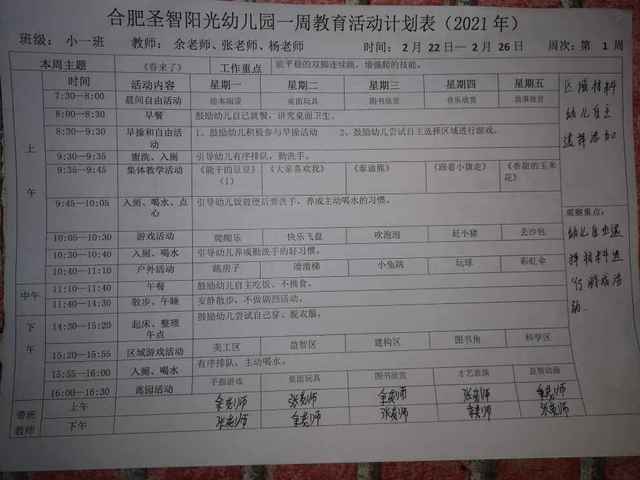 合肥圣智阳光幼儿园一周教育活动计划表（2021 年）
班级：小一班 教师：余老师、张老师、杨老师 时间：2 月 22日— 2 月 26日 周次：第 1 周
本周主题 《春来了》 工作重点 能平稳的双脚连续跳，增强爬的技能。
时间 活动内容 星期一 星期二 星期三 星期四 星期五
7:30—8:00 晨间自由活动 绘本阅读 桌面玩具 图书欣赏 音乐欣赏 故事欣赏
8:00—8:30 早餐 鼓励幼儿自己就餐，讲究桌面卫生。
8:30—9:30 早操和自由活动 1、鼓励幼儿积极参与早操活动 2、鼓励幼儿尝试自主选择区域进行游戏。
9:30—9:35 盥洗、入厕 引导幼儿有序排队，勤洗手。
9:35—9:45 集体教学活动 《能干的豆豆》（1） 《大家喜欢我》 《泰迪熊》 《跟着小旗走》 《香甜的玉米花》
9:45—10:05 入厕、喝水、点心 引导幼儿饭前便后要洗手，养成主动喝水的习惯。
10:05—10:30 游戏活动 爬爬乐 快乐飞盘 吹泡泡 赶小猪 丢沙包
10:30—10:40 入厕、喝水 引导幼儿养成勤洗手的好习惯。
10:40—11:10 户外活动 跳房子 滑滑梯 小兔跳 玩球 彩虹伞
11:10—11:40 午餐 鼓励幼儿自主吃饭，不挑食。
11:40—14:30 散步、午睡 安静散步，不做剧烈活动。
14:30—15:20 起床、整理 午点 鼓励幼儿尝试自己穿、脱衣服。
15:20—15:55 区域游戏活动 美工区 益智区 建构区 图书角 科学区
15:55—16:00 入厕、喝水 有序排队，主动喝水。
16:00—16:30 离园活动 手指游戏 桌面玩具 图书欣赏 才艺表演 益智动画
上午
中午
下午
带班教师 上午 余老师 张老师 余老师 张老师 余老师
下午 张老师 余老师 张老师 余老师 张老师
区域材料
幼儿自主
选择添加
观察重点：
幼儿自主选
择材料进
行游戏活
动。